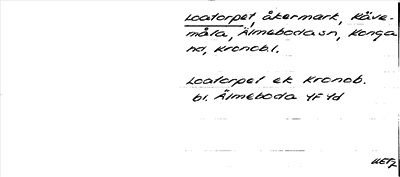 Loatorpet, åkermark, Räve-
måla, Älmeboda sn, Konga
hd, Kronob.l.
Loatorpet ek Kronob.
bl. Älmeboda YF Yd